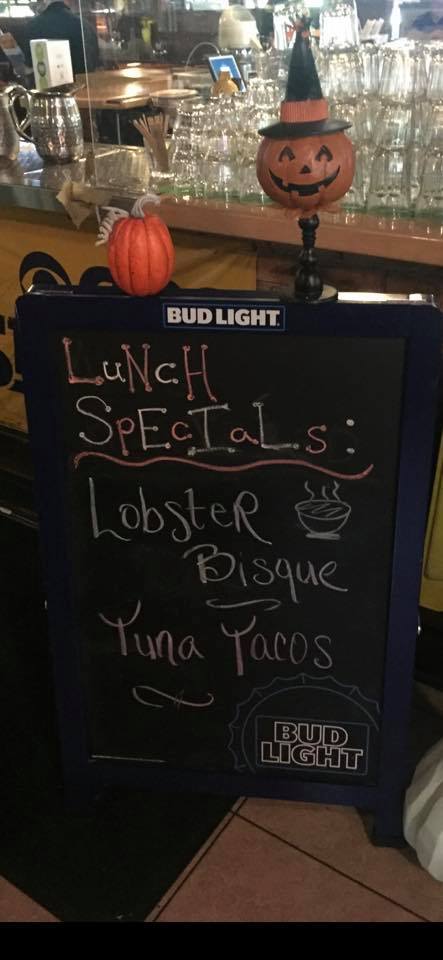 BUD LIGHT.
LuNcH
SpEcIaLs:
LobsteR
Bisque
Tuna Tacos
BUD
LIGHT